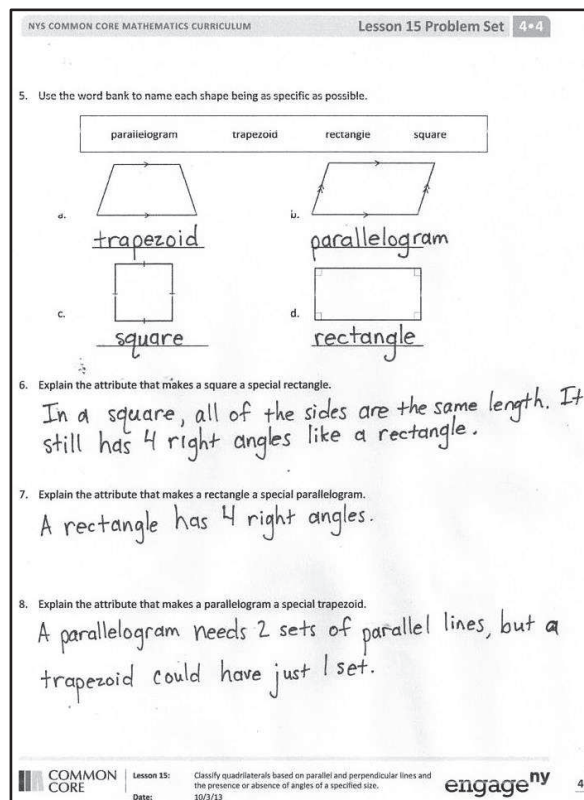 NYS COMMON CORE MATHEMATICS CURRICULUM
Lesson 15 Problem Set 4•4
5. Use the word bank to name each shape being as specific as possible.
parallelogram trapezoid rectangle square
a.
b.
trapezoid
parallelogram
c.
d.
square
rectangle
6. Explain the attribute that makes a square a special rectangle.
In a square, all of the sides are the same length. It
still has 4 right angles like a rectangle.
7. Explain the attribute that makes a rectangle a special parallelogram.
A rectangle has 4 right angles.
8. Explain the attribute that makes a parallelogram a special trapezoid.
A parallelogram needs 2 sets of parallel lines, but a
trapezoid could have just 1 set.
COMMON
CORE
Lesson 15:
Classify quadrilaterals based on parallel and perpendicular lines and
the presence or absence of angles of a specified size.
Date:
10/3/13
engage ny
4